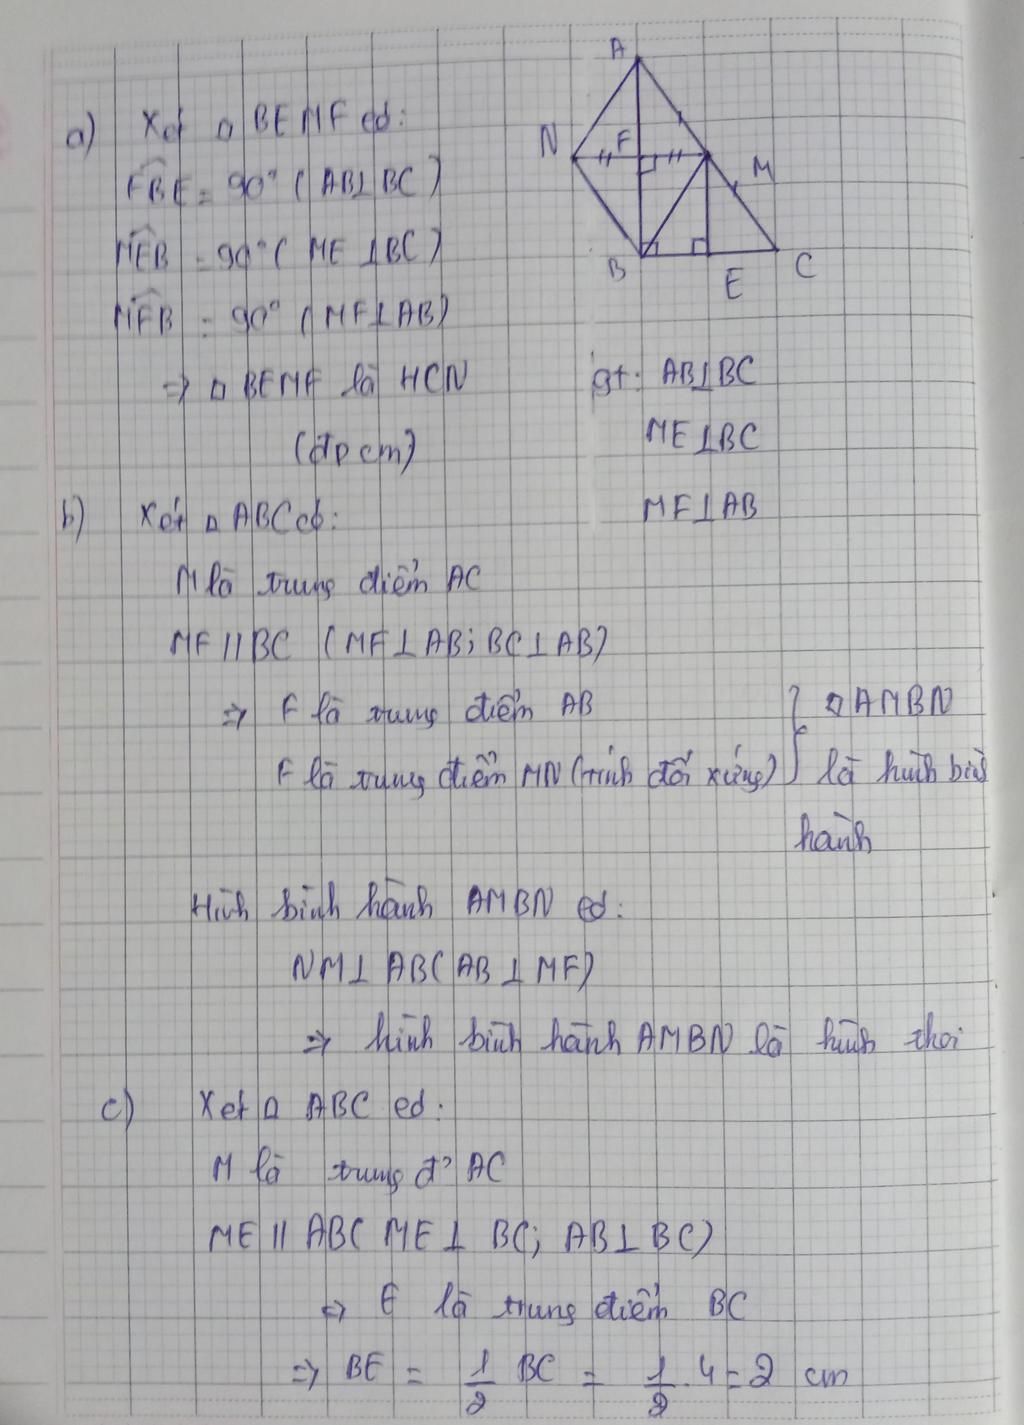 a) Xét □ BEMF có:
FBE = 90° (AB⊥BC)
MEB = 90° ( ME ⊥BC)
MFB = 90° (MF⊥AB)
=> □ BEMF là HCN
(đpcm)
A
N
F
M
B
E
C
gt: AB⊥BC
ME⊥BC
MF⊥AB
b) Xét △ ABC có:
M là trung điểm AC
MF // BC (MF⊥AB; BC⊥AB)
=> F là trung điểm AB
F là trung điểm MN (tính đối xứng)
} □ AMBN
là hình bình
hành
Hình bình hành AMBN có:
NM⊥ AB (AB ⊥ MF)
=> hình bình hành AMBN là hình thoi
c) Xét △ ABC có:
M là trung đ' AC
ME // AB ( ME⊥ BC; AB⊥BC)
=> E là trung điểm BC
=> BE = 1/2 BC = 1/2 . 4 = 2 cm